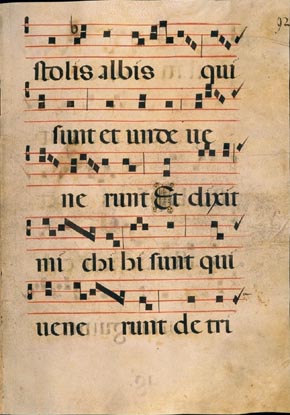 92
stolis albis qui
sunt et unde ue
ne runt Et dixit
mi chi hi sunt qui
uene runt de tri